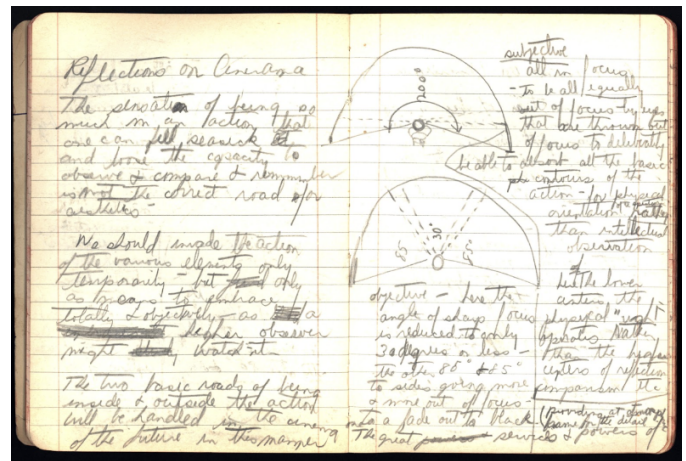 Reflections on Cinerama
The sensation of being so
much in an action that
one can feel seasick
and loose the capacity to
observe & compare & remember
is not the correct road for
aesthetics -
We should invade the action
of the various elements only
temporarily - but only
as means to embrace
totally & objectively - as a
higher observer
might watch it.
The two basic roads of being
inside & outside the action
will be handled in the cinema
of the future in this manner
200°
85
30°
85
objective - here the
angle of sharp focus
is reduced to only
30 degrees or less -
the other 85° & 85°
to sides going more
& more out of focus -
into a fade out to black.
The great services & powers of
subjective
all in focus
- to be all equally
out of focus - by eyes
that are thrown out
of focus to deliberately
be able to absorb all the basic
contours of the
action - for physical
orientation rather
than intellectual
observation
here the lower
centers the
physical
operates rather
than the higher
centers of reflection
comparison etc